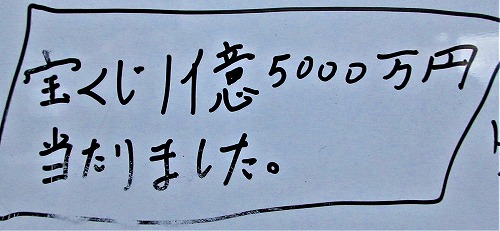 宝くじ1億5000万円
当たりました。